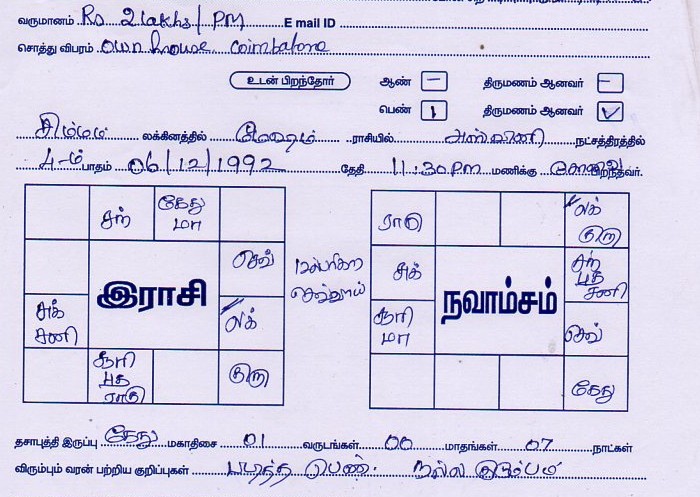 வருமானம் Rs 2 lakhs / PM E mail ID
சொத்து விபரம் own house coimbatore
உடன் பிறந்தோர் ஆண் – திருமணம் ஆனவர் –
பெண் 1 திருமணம் ஆனவர் ✓
சிம்மம் லக்கினத்தில் மேஷம் ராசியில் அஸ்வினி நட்சத்திரத்தில்
4-ம் பாதம் 06/12/1992 தேதி 11:30 PM மணிக்கு பிறந்தவர்.
சந் கேது மா
செவ்
இராசி
சுக் சனி லக்
சூரி புத ராகு குரு
பரிகார செவ்வாய்
ராகு லக் குரு
சுக் சந் புத சனி
நவாம்சம்
சூரி மா செவ்
கேது
தசாபுத்தி இருப்பு கேது மகாதிசை 01 வருடங்கள் 00 மாதங்கள் 07 நாட்கள்
விரும்பும் வரன் பற்றிய குறிப்புகள் படித்த பெண். நல்ல குடும்பம்